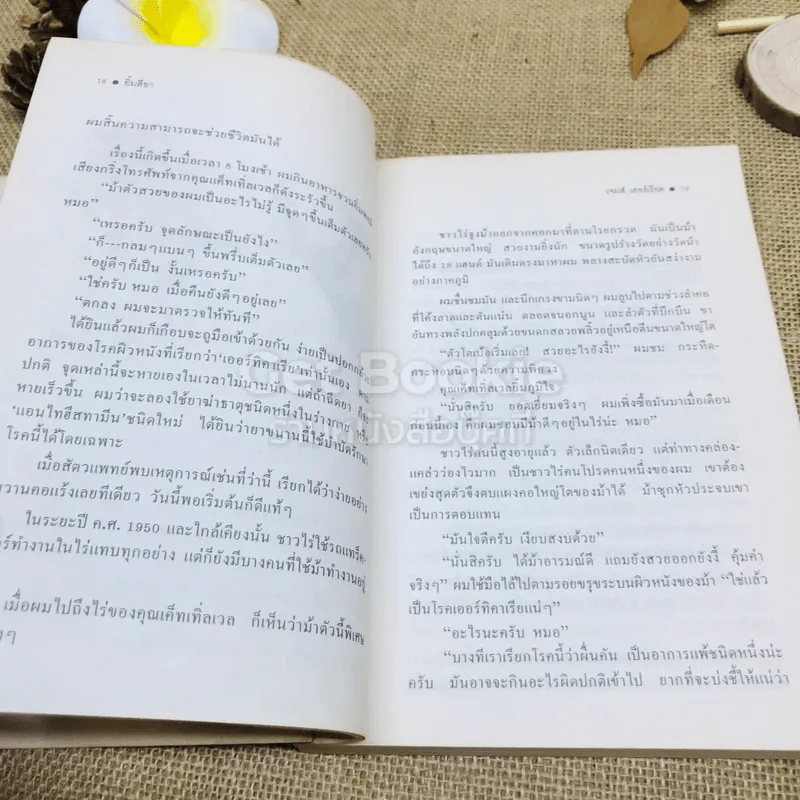 18 ● ยิ้มสีขา
ผมสิ้นความสามารถจะช่วยชีวิตมันได้
เรื่องนี้เกิดขึ้นเมื่อเวลา 8 โมงเช้า ผมกินอาหารจวนอิ่มพอดี
เสียงกริ่งโทรศัพท์จากคุณเค็ทเทิ่ลเวลก็ดังระรัวขึ้น
“ม้าตัวสวยของผมเป็นอะไรไม่รู้ มีจุดๆขึ้นเต็มตัวเลยครับ
หมอ”
“เหรอครับ จุดลักษณะเป็นยังไง”
“ก็---กลมๆแบนๆ ขึ้นพรึ่บเต็มตัวเลย”
“อยู่ดีๆก็เป็น งั้นเหรอครับ”
“ใช่ครับ หมอ เมื่อคืนยังดีๆอยู่เลย”
“ตกลง ผมจะมาตรวจให้ทันที”
ได้ยินแล้วผมก็เกือบจะถูมือเข้าด้วยกัน ง่ายเป็นปอกกล้วย
อาการของโรคผิวหนังที่เรียกว่า‘เออร์ทิคาเรีย’เท่านั้นเอง ตาม
ปกติ จุดเหล่านี้จะหายเองในเวลาไม่นานนัก แต่ถ้าฉีดยา ก็
หายเร็วขึ้น ผมว่าจะลองใช้ยาฆ่าธาตุชนิดหนึ่งในร่างกาย หรือ
‘แอนไทฮีสทามีน’ชนิดใหม่ ได้ยินว่ายาขนานนี้ใช้บำบัดรักษา
โรคนี้ได้โดยเฉพาะ
เมื่อสัตวแพทย์พบเหตุการณ์เช่นที่ว่านี้ เรียกได้ว่าง่ายอย่าง
หวานคอแร้งเลยทีเดียว วันนี้พอเริ่มต้นก็ดีแท้ๆ
ในระยะปี ค.ศ. 1950 และใกล้เคียงนั้น ชาวไร่ใช้รถแทร็ค-
เตอร์ทำงานในไร่แทบทุกอย่าง แต่ก็ยังมีบางคนที่ใช้ม้าทำงานอยู่
เมื่อผมไปถึงไร่ของคุณเค็ทเทิ่ลเวล ก็เห็นว่าม้าตัวนี้พิเศษ
จริงๆ
เจมส์ เฮอร์เรียต ● 19
ชาวไร่จูงม้าออกจากคอกมาที่ลานโรยกรวด มันเป็นม้า
อังกฤษขนาดใหญ่ สวยงามยิ่งนัก ขนาดรูปร่างวัดอย่างวัดม้า
ได้ถึง 18 แฮนด์ มันเดินตรงมาหาผม พลางสะบัดหัวอันสง่างาม
อย่างภาคภูมิ
ผมชื่นชมมัน และนึกเกรงขามนิดๆ ผมลูบไปตามช่วงลำคอ
ที่โค้งลาดและตันแน่น ตลอดจนอกนูน และลำตัวที่บึกบึน ขา
อันทรงพลังปกคลุมด้วยขนดกสลวยพลิ้วอยู่เหนือตีนขนาดใหญ่โต
“ตัวโตเบ้อเริ่มเลย! สวยอะไรยังงี้!” ผมชม กระหืด-
กระหอบนิดๆด้วยความพิศวง
คุณเค็ทเทิ่ลเวลยิ้มภูมิใจ
“นั่นสิครับ ยอดเยี่ยมจริงๆ ผมเพิ่งซื้อมันมาเมื่อเดือน
ก่อนนี้เอง คือผมชอบมีม้าดีๆอยู่ในไร่น่ะ หมอ”
ชาวไร่คนนี้สูงอายุแล้ว ตัวเล็กนิดเดียว แต่ท่าทางคล่อง-
แคล่วว่องไวมาก เป็นชาวไร่คนโปรดคนหนึ่งของผม เขาต้อง
เขย่งสุดตัวจึงตบแผงคอใหญ่โตของม้าได้ ม้าซุกหัวประจบเขา
เป็นการตอบแทน
“มันใจดีครับ เงียบสงบด้วย”
“นั่นสิครับ ได้ม้าอารมณ์ดี แถมยังสวยออกยังงี้ คุ้มค่า
จริงๆ” ผมใช้มือไล้ไปตามรอยขรุขระบนผิวหนังของม้า “ใช่แล้ว
เป็นโรคเออร์ทิคาเรียแน่ๆ”
“อะไรนะครับ หมอ”
“บางทีเราเรียกโรคนี้ว่าผื่นคัน เป็นอาการแพ้ชนิดหนึ่งน่ะ
ครับ มันอาจจะกินอะไรผิดปกติเข้าไป ยากที่จะบ่งชี้ให้แน่ว่า
Get Bookie
ร้านหนังสือปิคกี้